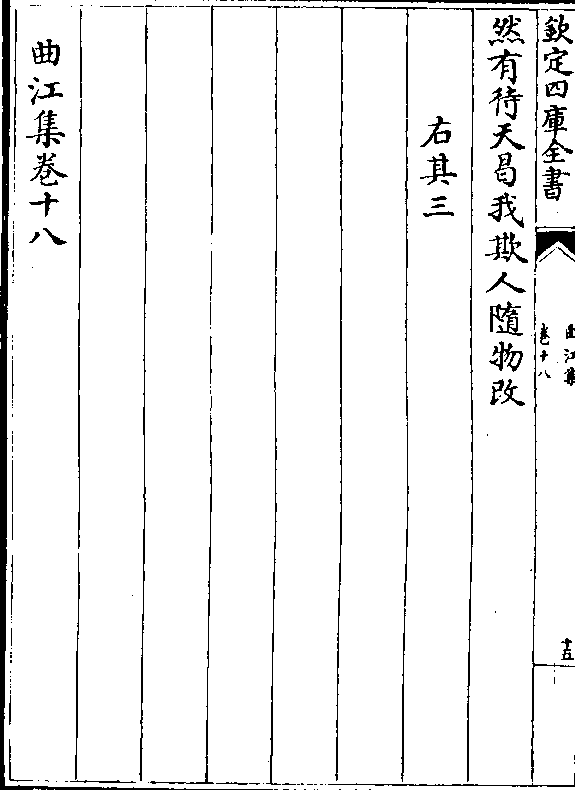 欽定四庫全書
曲江集
卷十八
十五
然有待天曷我欺人隨物改
右其三
曲江集卷十八